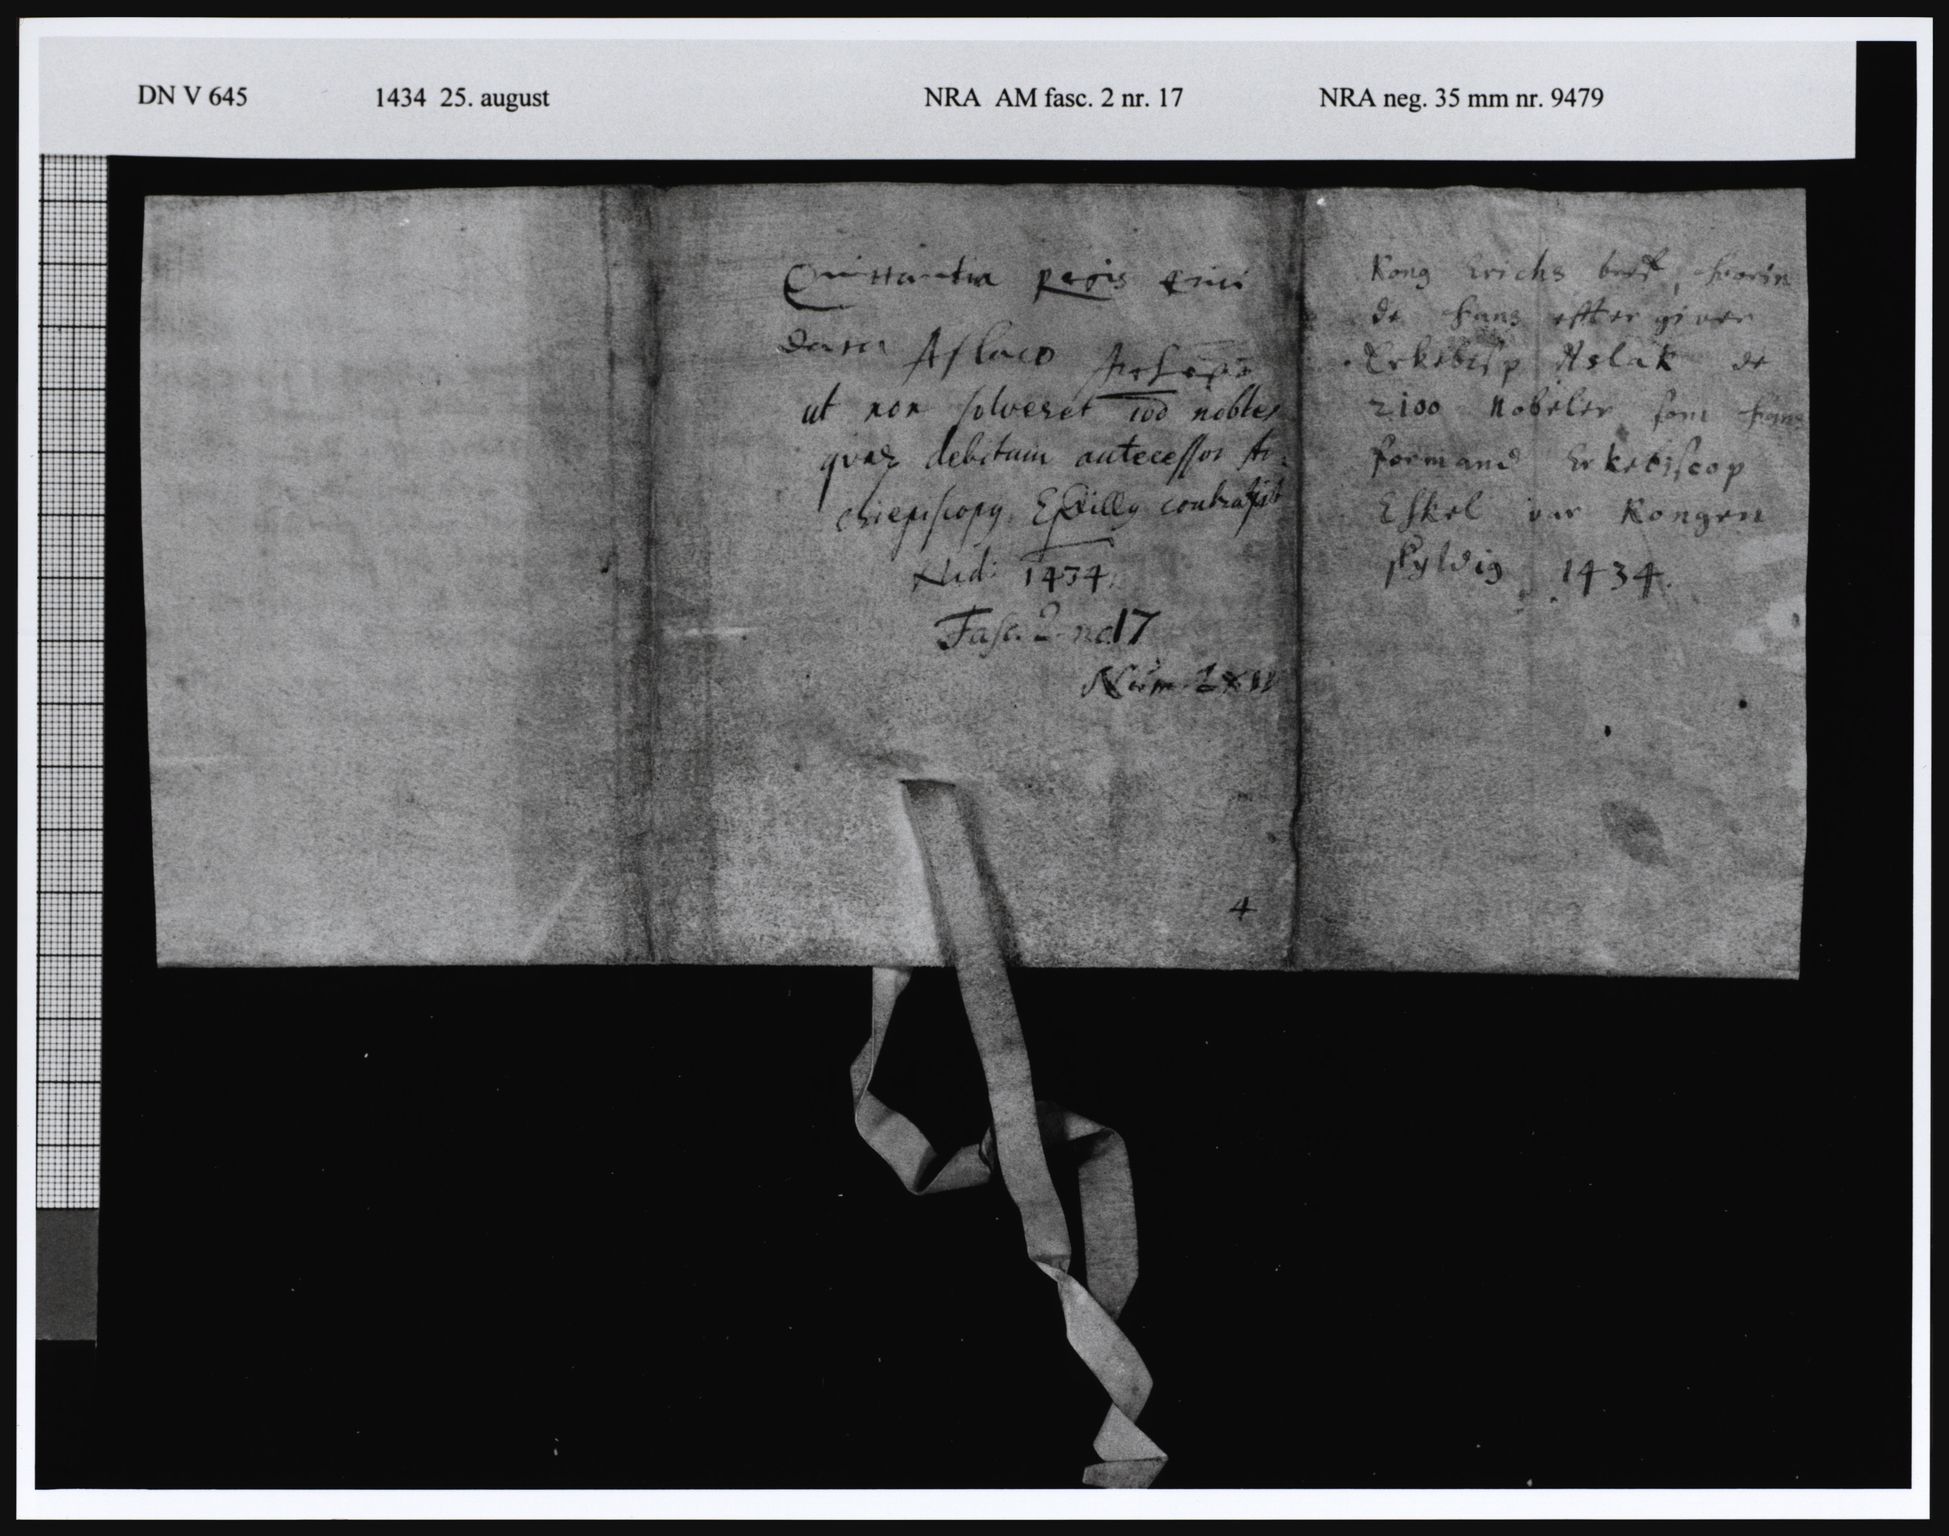 DN V 645 1434 25. august NRA AM fasc. 2 nr. 17 NRA neg. 35 mm nr. 9479
Quittantia Regis Erici
Aslaco
ut non solveret nobles
qvas debitum antecessor Ar-
chiepiscopg contraxit
1434
Fasc. 2 no 17
Num LXII
4
Kong Erichs breff, hvorin
de hans effter giver
Erkebisp Aslak de
2100 Nobeler som hans
formand Erkebiscop
Eskel var Kongen
skyldig 1434.